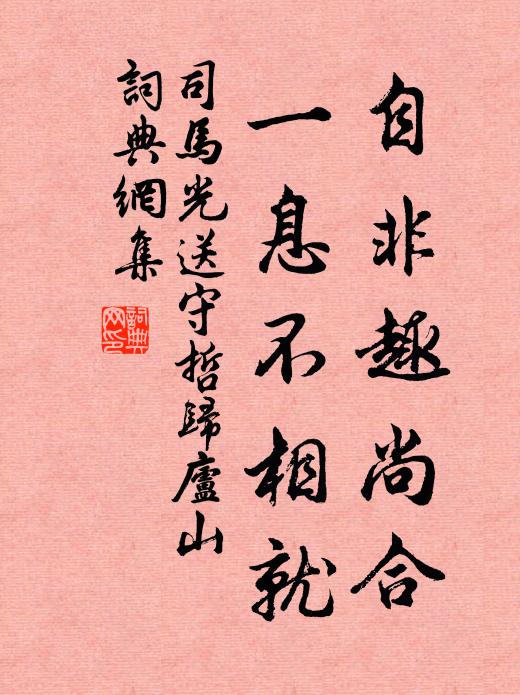 自非趣尚合
一息不相就
司馬光送守哲歸廬山
詞典網集
詞典网印